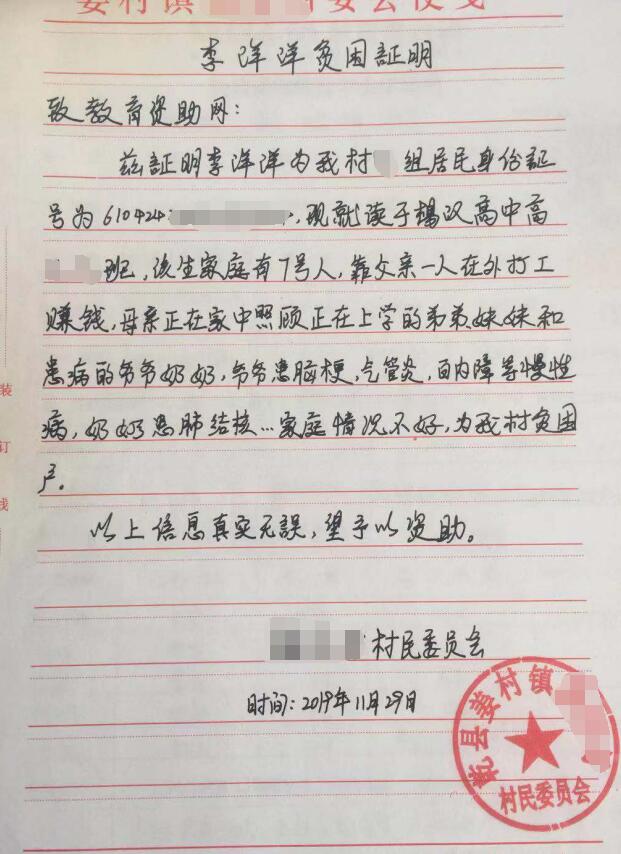 姜村镇 村委会便笺
李洋洋贫困証明
致教育资助网:
兹証明李洋洋为我村 组居民身份証
号为610424 ,现就读于杨汉高中高
班,该生家庭有7号人,靠父亲一人在外打工
赚钱,母亲正在家中照顾正在上学的弟弟、妹妹和
患病的爷爷奶奶,爷爷患脑梗,气管炎,白内障等慢性
病,奶奶患肺结核...家庭情况不好,为我村贫困
户。
以上信息真实无誤,望予以资助。
村民委员会
时间:2019年11月29日
乾县姜村镇
村民委员会
装
订
线